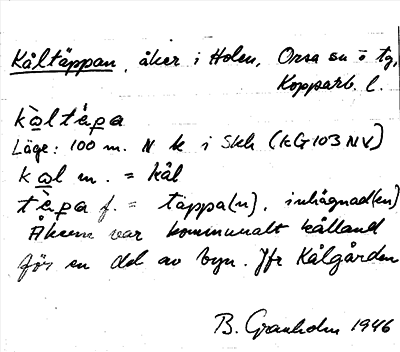 Kåltäppan, åker i Holen, Orsa sn o tg,
Kopparb. l.
kàltè̀pa
Läge: 100 m. N k i Skh (kG103NV)
kal m. = kål
tèpa f. = täppa(n), inhägnad(en)
Åkern var kommunalt kålland
för en del av byn. Jfr Kålgården
B. Granholm 1946